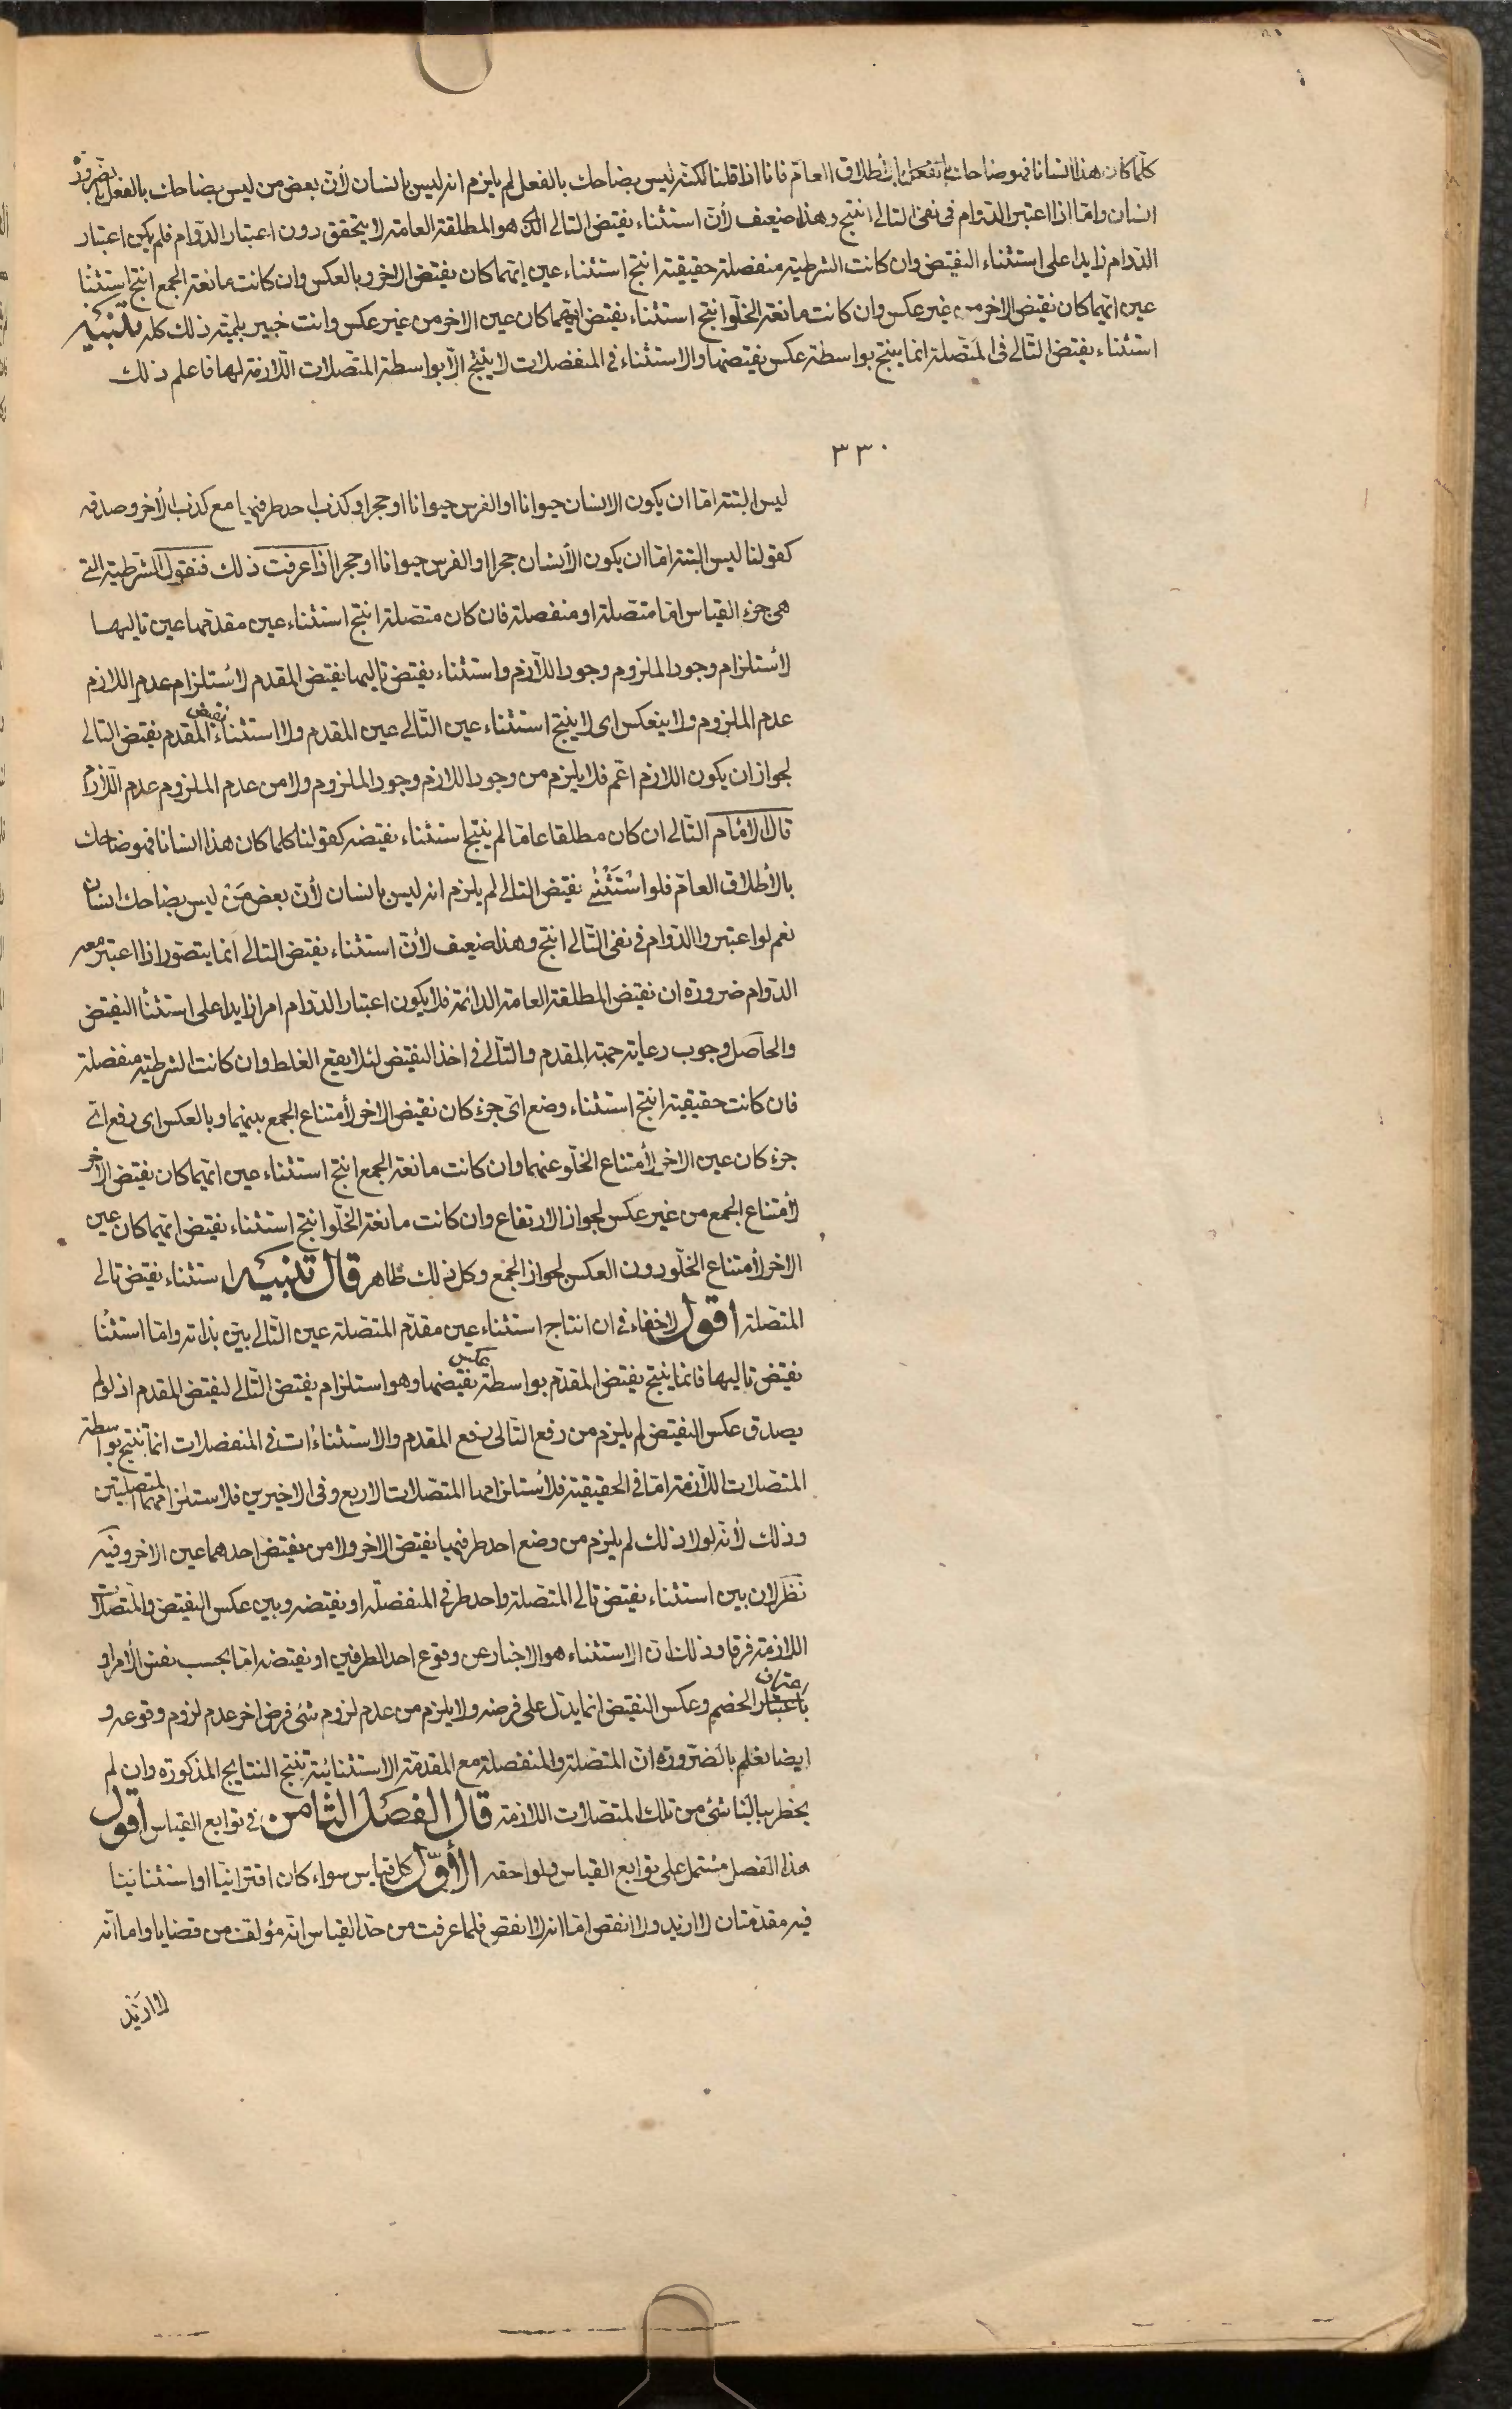 كلما كان هذا انسانا فهو ضاحك بالفعل بالأطلاق العام فانا اذا قلنا لكنه ليس بضاحك بالفعل لم يلزم انه ليس بانسان لأن بعض من ليس بضاحك بالفعل بالضرورة
انسان واما اذا اعتبر الدوام في نفي التالي انتج وهذا ضعيف لأن استثناء نقيض التالي الذي هو المطلقة العامة لا يتحقق دون اعتبار الدوام فلم يكن اعتبار
الدوام زايدا على استثناء النقيض وان كانت الشرطية منفصلة حقيقية انتج استثناء عين ايهما كان نقيض الاخر وبالعكس وان كانت مانعة الجمع انتج استثنا
عين ايهما كان نقيض الاخر من غير عكس وان كانت مانعة الخلو انتج استثناء نقيض ايهما كان عين الاخر من غير عكس وانت خبير بلمية ذلك كله تنبيه
استثناء نقيض التالي في المتصلة انما ينتج بواسطة عكس نقيضها والاستثناء في المنفصلات لا ينتج الا بواسطة المتصلات اللازمة لها فاعلم ذلك
٣٣٠
ليس البتة اما ان يكون الانسان حيوانا او الفرس حيوانا او حجرا وكذب احد طرفيها مع كذب الأخر وصدقه
كقولنا ليس البتة اما ان يكون الأنسان حجرا او الفرس حيوانا او حجرا اذا عرفت ذلك فنقول الشرطية التي
هي جزء القياس اما متصلة او منفصلة فان كان متصلة انتج استثناء عين مقدمها عين تاليها
لأستلزام وجود الملزوم وجود اللازم واستثناء نقيض تاليها نقيض المقدم لأستلزام عدم اللازم
عدم الملزوم ولا ينعكس اى لا ينتج استثناء عين التالي عين المقدم ولا استثناء نقيض المقدم نقيض التالي
لجواز ان يكون اللازم اعم فلا يلزم من وجود اللازم وجود الملزوم ولا من عدم الملزوم عدم اللازم
قال الامام التالي ان كان مطلقا عاما لم ينتج استثناء نقيضه كقولنا كلما كان هذا انسانا فهو ضاحك
بالأطلاق العام فلو استثني نقيض التالي لم يلزم انه ليس بانسان لأن بعض من ليس بضاحك انسان
نعم لو اعتبروا الدوام في نفي التالي انتج وهذا ضعيف لأن استثناء نقيض التالي انما يتصور اذا اعتبر معه
الدوام ضرورة ان نقيض المطلقة العامة الدائمة فلا يكون اعتبار الدوام امرا زايدا على استثنا النقيض
والحاصل وجوب رعاية جهة المقدم والتالي في اخذ النقيض لئلا يقع الغلط وان كانت الشرطية منفصلة
فان كانت حقيقية انتج استثناء وضع اى جزء كان نقيض الاخر لأمتناع الجمع بينهما وبالعكس اى رفع اي
جزء كان عين الاخر لأمتناع الخلو عنهما وان كانت مانعة الجمع انتج استثناء عين ايهما كان نقيض الأخر
لأمتناع الجمع من غير عكس لجواز الارتفاع وان كانت مانعة الخلو انتج استثناء نقيض ايهما كان عين
الاخر لأمتناع الخلو دون العكس لجواز الجمع وكل ذلك ظاهر قال تنبيه استثناء نقيض تالي
المتصلة أقول لا خفاء في ان انتاج استثناء عين مقدم المتصلة عين التالي بين بذاته واما استثنا
نقيض تاليها فانما ينتج نقيض المقدم بواسطة عكس نقيضها وهو استلزام نقيض التالي لنقيض المقدم اذ لو لم
يصدق عكس النقيض لم يلزم من رفع التالي رفع المقدم والاستثناءات في المنفصلات انما تنتج بواسطة
المتصلات اللازمة اما في الحقيقية فلأستلزامها المتصلات الاربع وفي الاخيرين فلاستلزامهما المتصلتين
وذلك لأنه لولا ذلك لم يلزم من وضع احد طرفيها نقيض الاخر ولا من نقيض احدهما عين الاخر وفيه
نظر لان بين استثناء نقيض تالي المتصلة واحد طرفي المنفصلة او نقيضه وبين عكس النقيض والمتصلات
اللازمة فرقا وذلك ان الاستثناء هو الاخبار عن وقوع احد الطرفين او نقيضه اما بحسب نفس الأمر او
باعتراف الخصم وعكس النقيض انما يدل على فرضه ولا يلزم من عدم لزوم شئ فرض اخر عدم لزوم وقوعه و
ايضا نعلم بالضرورة ان المتصلة والمنفصلة مع المقدمة الاستثنائية تنتج النتايج المذكورة وان لم
يخطر ببالنا شئ من تلك المتصلات اللازمة قال الفصل الثامن في توابع القياس أقول
هذا الفصل مشتمل على توابع القياس ولواحقه الأول كل قياس سواء كان اقترانيا او استثنائيا
فيه مقدمتان لا ازيد ولا انقص اما انه لا انقص فلما عرفت من حد القياس انه مؤلف من قضايا واما انه
لا ازيد